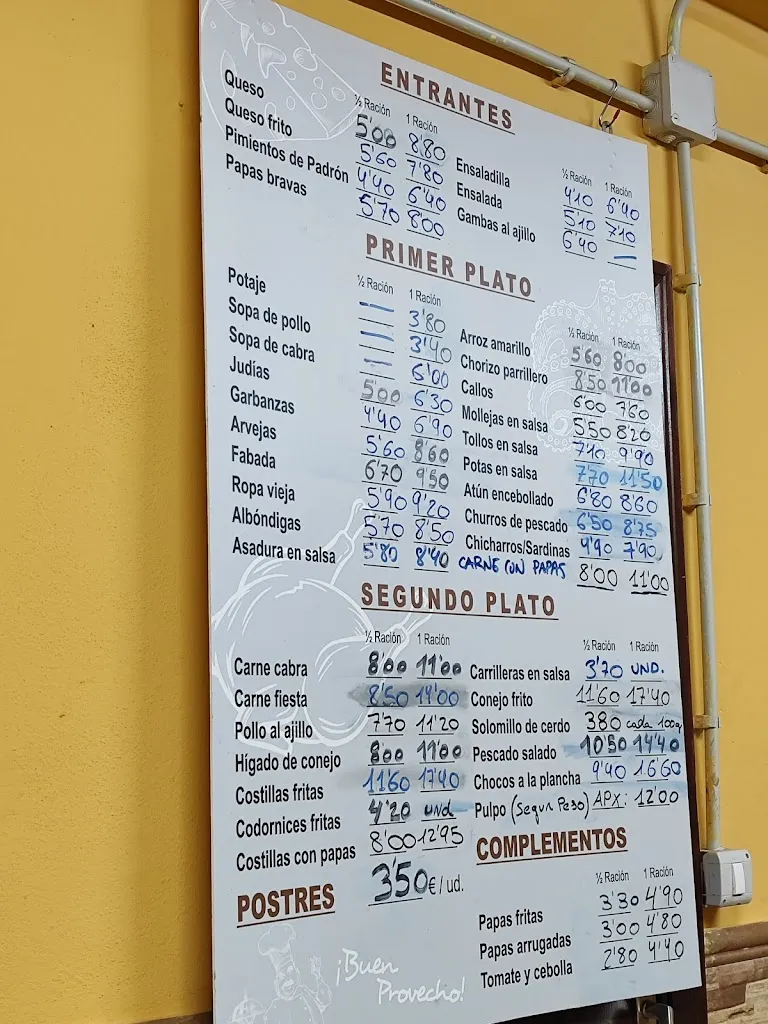 ENTRANTES
½ Ración 1 Ración
Queso 5'00 8'80
Queso frito 5'60 7'80
Pimientos de Padrón 4'40 6'40
Papas bravas 5'70 8'00
½ Ración 1 Ración
Ensaladilla 4'10 6'40
Ensalada 5'10 7'10
Gambas al ajillo 6'40 —
PRIMER PLATO
½ Ración 1 Ración
Potaje — 3'80
Sopa de pollo — 3'40
Sopa de cabra — 6'00
Judías 5'00 6'30
Garbanzas 4'40 6'90
Arvejas 5'60 8'60
Fabada 6'70 9'50
Ropa vieja 5'90 9'20
Albóndigas 5'70 8'50
Asadura en salsa 5'80 8'40
½ Ración 1 Ración
Arroz amarillo 5'60 8'00
Chorizo parrillero 8'50 11'00
Callos 6'00 7'60
Mollejas en salsa 5'50 8'20
Tollos en salsa 7'10 9'90
Potas en salsa 7'70 11'50
Atún encebollado 6'80 8'60
Churros de pescado 6'50 8'75
Chicharros/Sardinas 4'90 7'90
CARNE CON PAPAS 8'00 11'00
SEGUNDO PLATO
½ Ración 1 Ración
Carne cabra 8'00 11'00
Carne fiesta 8'50 14'00
Pollo al ajillo 7'70 11'20
Hígado de conejo 8'00 11'00
Costillas fritas 11'60 17'40
Codornices fritas 4'20 und.
Costillas con papas 8'00 12'95
½ Ración 1 Ración
Carrilleras en salsa 3'70 UND.
Conejo frito 11'60 17'40
Solomillo de cerdo 3'80 cada 100g
Pescado salado 10'50 14'40
Chocos a la plancha 9'40 16'60
Pulpo (Segun Peso) APX: 12'00
POSTRES 3'50 €/ud.
COMPLEMENTOS
½ Ración 1 Ración
Papas fritas 3'30 4'90
Papas arrugadas 3'00 4'80
Tomate y cebolla 2'80 4'40
¡Buen
Provecho!